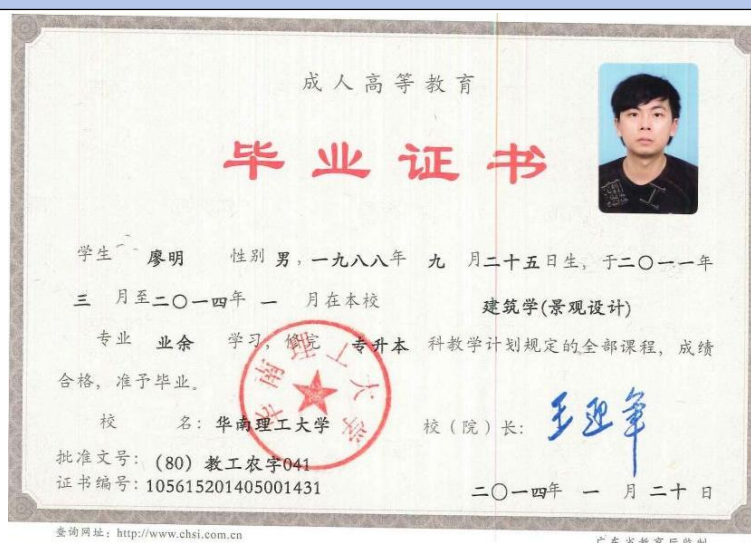 成人高等教育
毕业证书
学生 廖明 性别 男，一九八八年 九 月二十五日生，于二〇一一年
三 月至二〇一四年 一 月在本校 建筑学(景观设计)
专业 业余 学习，修完 专升本 科教学计划规定的全部课程，成绩
合格，准予毕业。
华南理工大学
校 名：华南理工大学 校（院）长：王迎军
批准文号：(80) 教工农字041
证书编号：105615201405001431 二〇一四年 一 月 二十 日
查询网址：http://www.chsi.com.cn 广东省教育厅监制